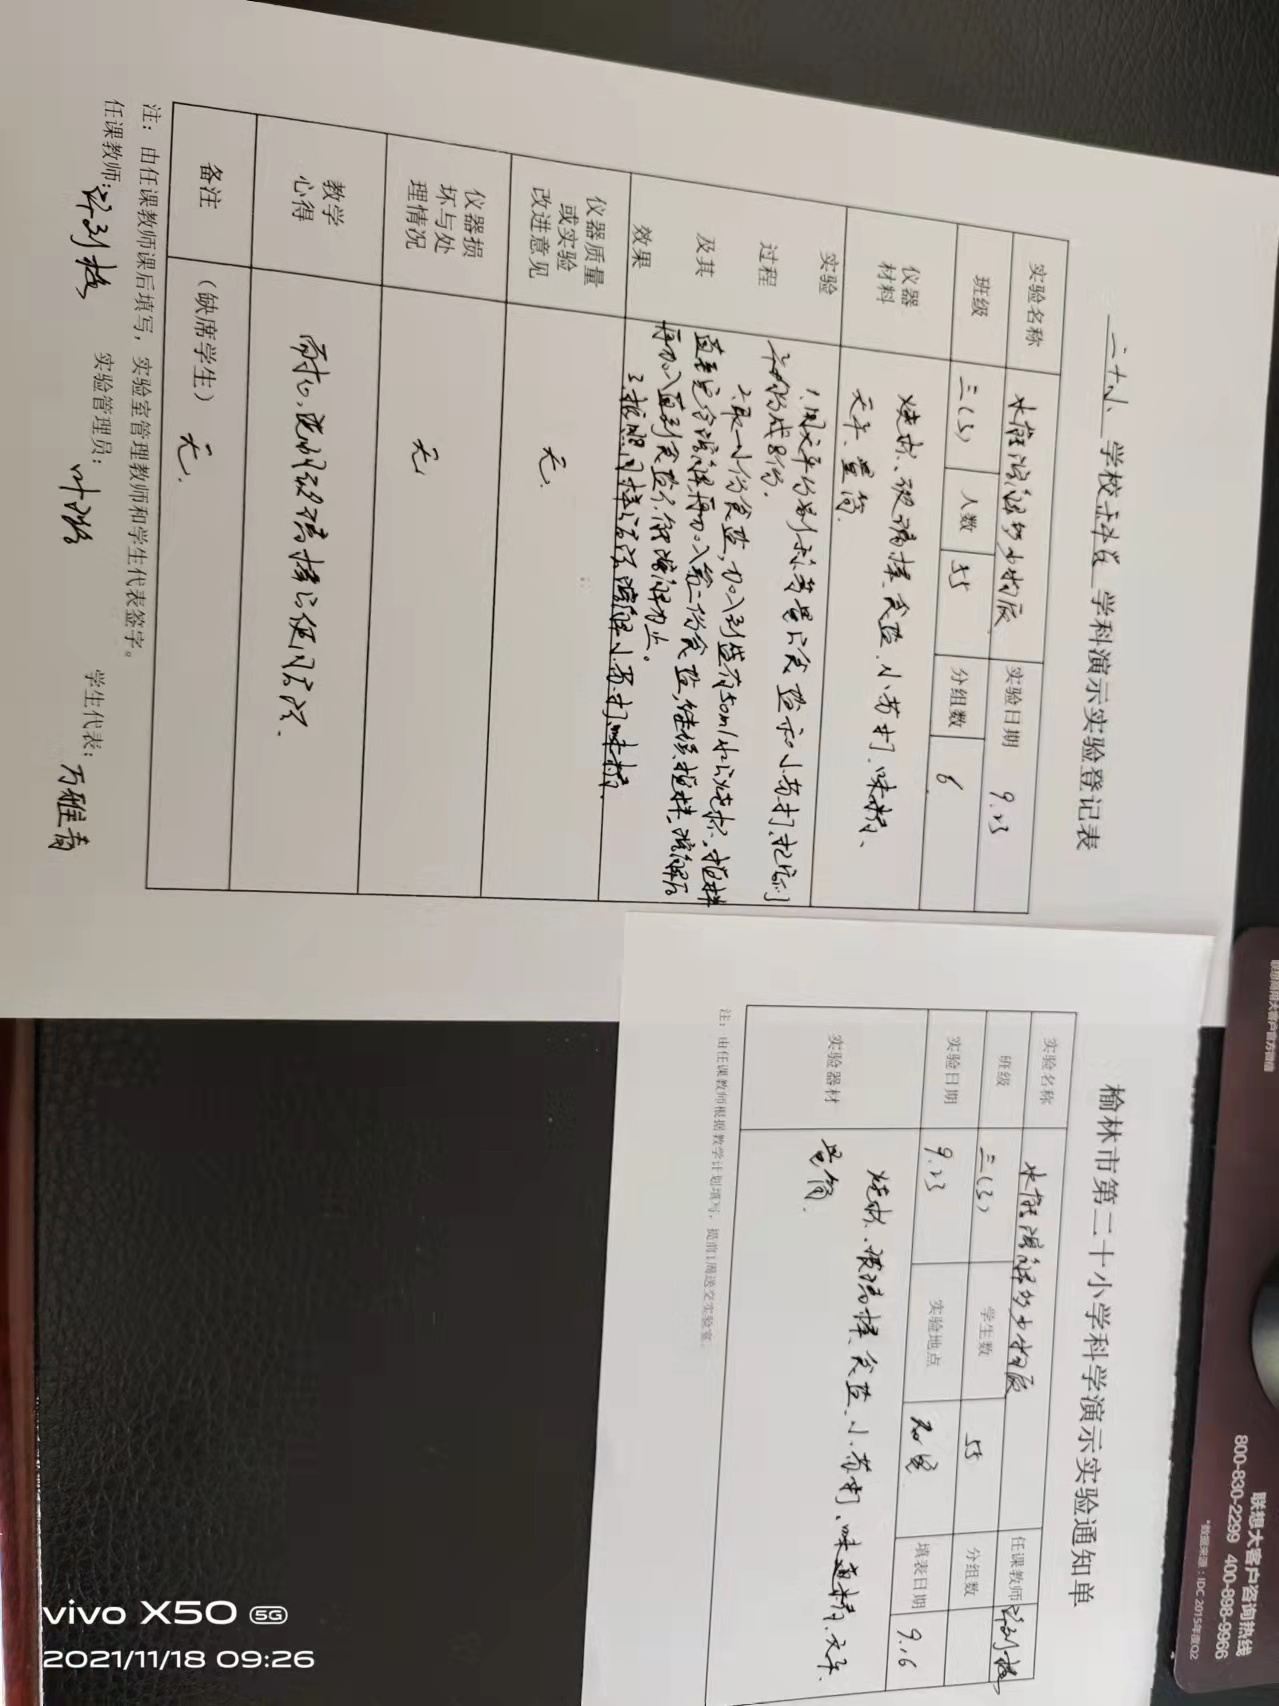 二十小 学校 科学 学科演示实验登记表
实验名称 水能溶解多少物质 实验日期 9.23
班级 三(3) 人数 55 分组数 6
仪器
材料
烧杯、玻璃棒、食盐、小苏打、味精、
天平、量筒。
实验
过程
及其
效果
1.用天平分别称等量的食盐和小苏打,把它们
平均分成8份。
2.取一小份食盐,加入到盛有50ml水的烧杯,搅拌
直至完全溶解,再加入第二份食盐,继续搅拌,溶解后
再加入直到食盐不能溶解为止。
3.按照同样的方法溶解小苏打、味精。
仪器质量
或实验
改进意见
无.
仪器损
坏与处
理情况
无
教学
心得
耐心,玻璃棒的使用方法.
备注 (缺席学生) 无.
注:由任课教师课后填写,实验室管理教师和学生代表签字。
任课教师: 实验管理员: 学生代表:万雅青
榆林市第二十小学科学演示实验通知单
实验名称 水能溶解多少物质 任课教师
班级 三(3) 学生数 55 分组数
实验日期 9.23 实验地点 填表日期 9.16
实验器材
烧杯、玻璃棒、食盐、小苏打、味精、天平、
量筒.
注:由任课教师根据教学计划填写,提前1周送交实验室。
联想商用大客户官方微信
联想大客户咨询热线
800-830-2299 400-898-9966
*数据来源:IDC 2015年度Q2
vivo X50 5G
2021/11/18 09:26